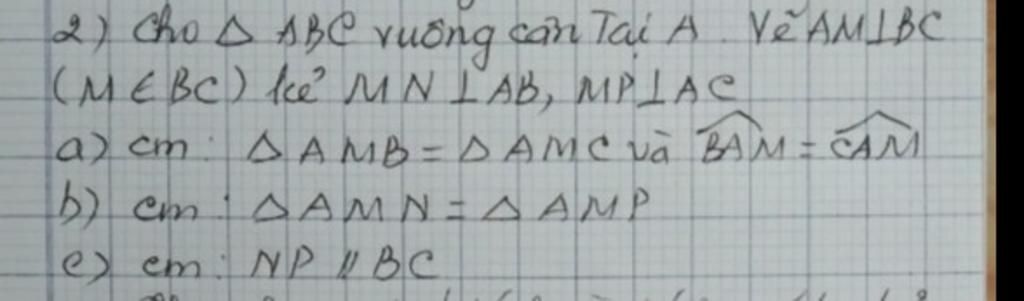 2) Cho Δ ABC vuông cân Tại A. Vẽ AM⊥BC
(M ∈ BC) kẻ MN ⊥ AB, MP ⊥ AC
a) cm: Δ AMB = Δ AMC và \widehat{BAM} = \widehat{CAM}
b) cm: Δ AMN = Δ AMP
c) cm: NP // BC